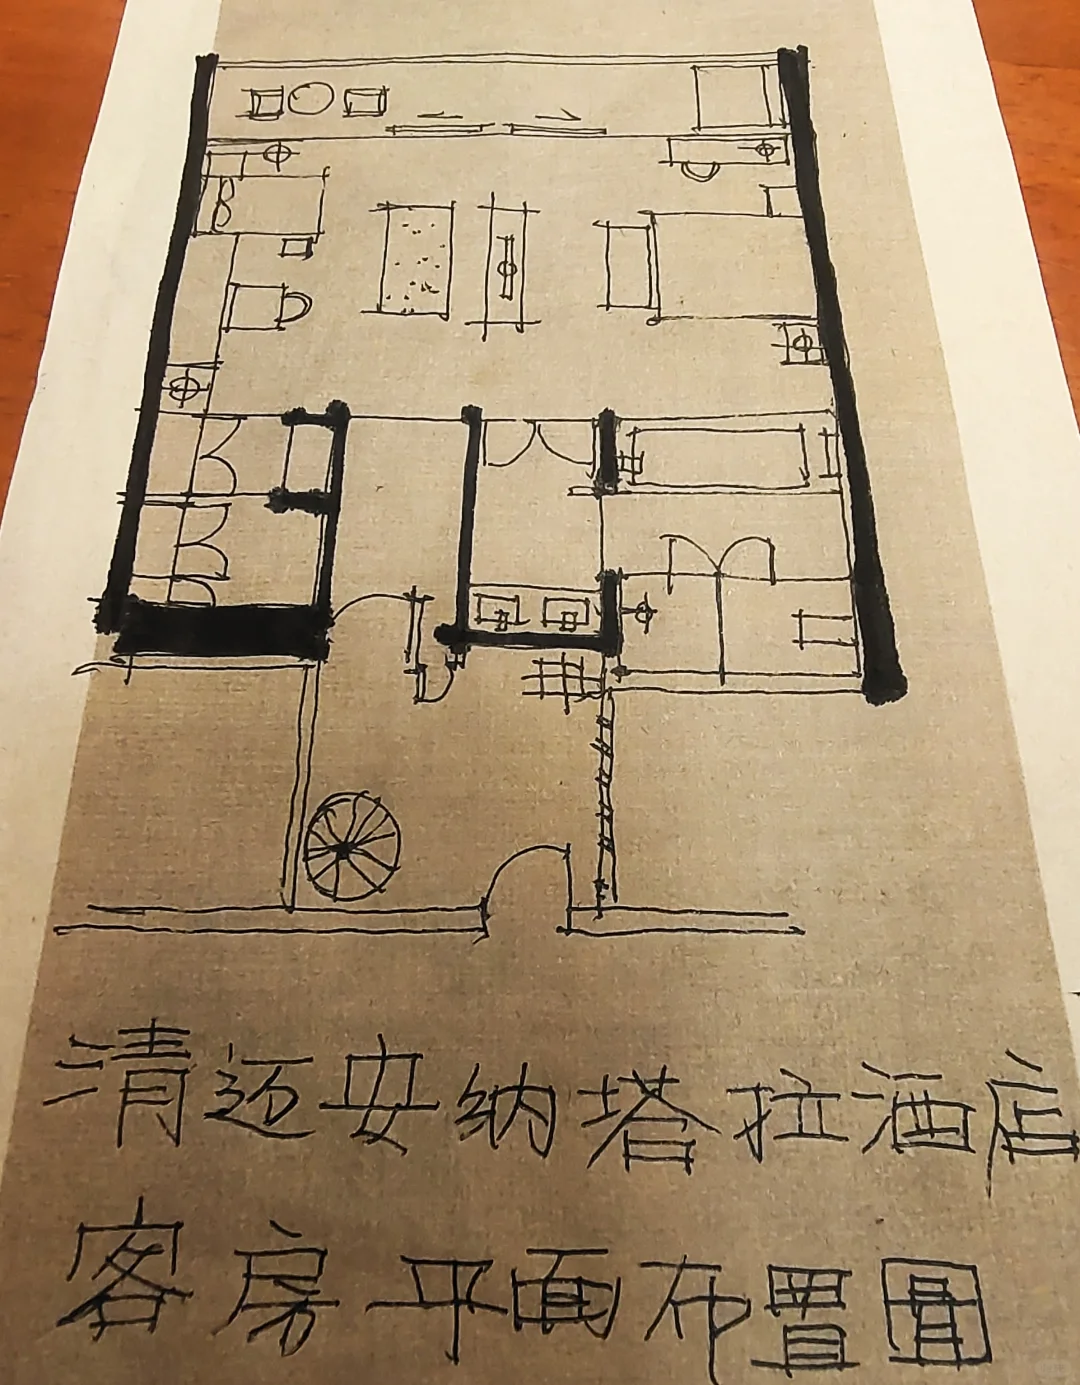 清迈安纳塔拉酒店
客房平面布置圖